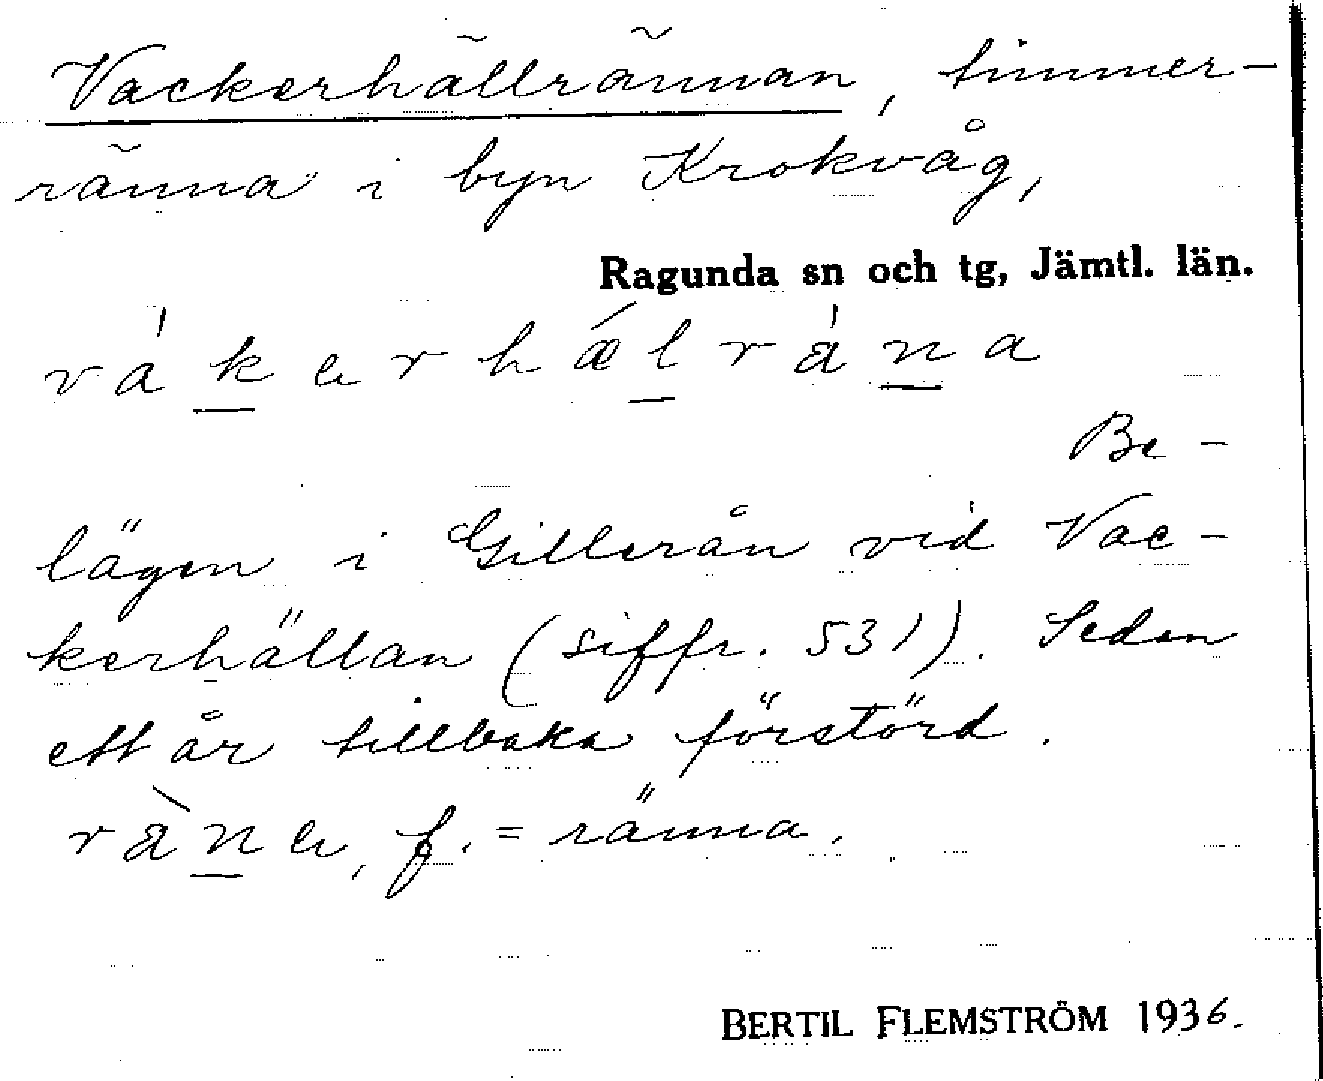 Vackerhällrännan, timmer-
ränna i byn Krokvåg,
Ragunda sn och tg, Jämtl. län.
vákerhǽlrána
Be-
lägen i Gillerån vid Vac-
kerhällan (siffr. 531). Sedan
ett år tillbaka förstörd.
ràne, f. = ränna.
BERTIL FLEMSTRÖM 1936.